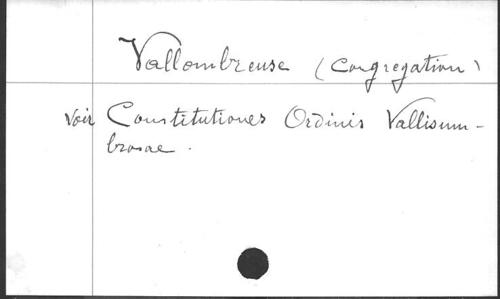 Vallombreuse (Congregation)
Voir Constitutiones Ordinis Vallisum-
brosae.